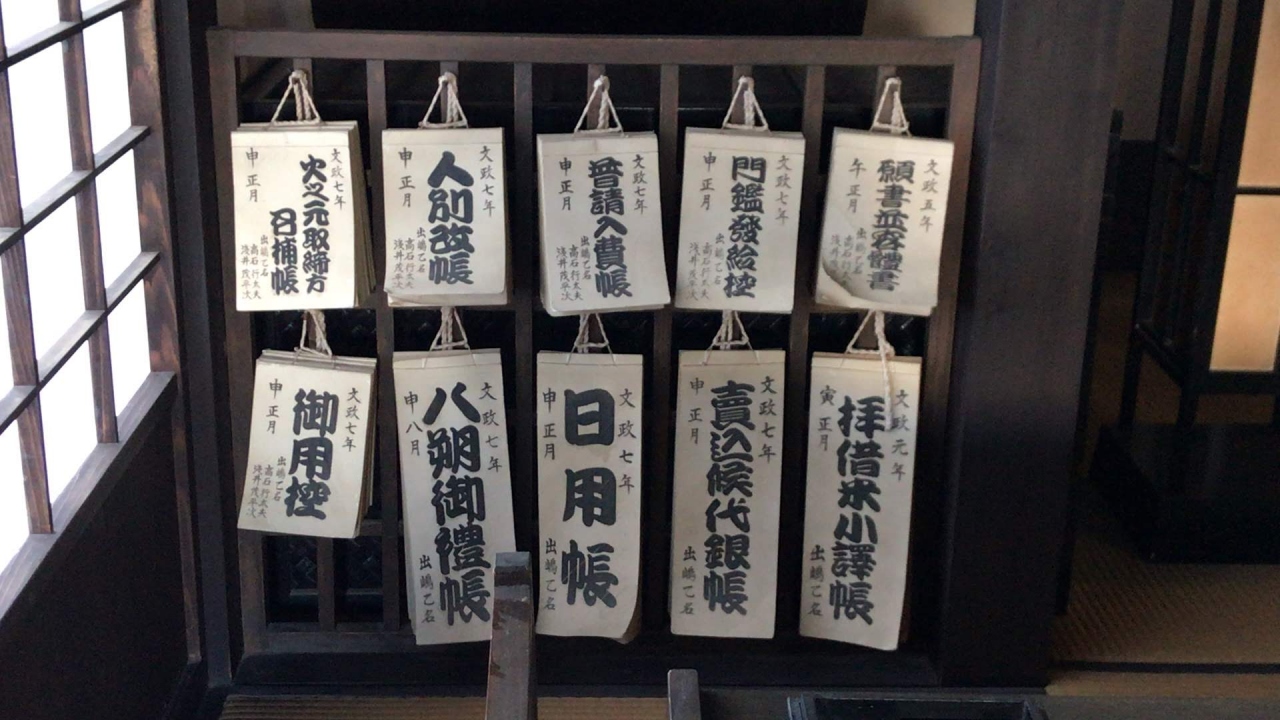 文政五年
願書並容體書
午正月
文政七年
門鑑發給控
申正月
出嶋乙名
高石行太夫
浅井茂平次
文政七年
普請入費帳
申正月
出嶋乙名
高石行太夫
浅井茂平次
文政七年
人別改帳
申正月
出嶋乙名
高石行太夫
浅井茂平次
文政七年
火之元取締方
日捕帳
申正月
出嶋乙名
高石行太夫
浅井茂平次
文政元年
拝借米小譯帳
寅正月
出嶋乙名
文政七年
賣込候代銀帳
申正月
出嶋乙名
文政七年
日用帳
申正月
出嶋乙名
文政七年
八朔御禮帳
申八月
出嶋乙名
文政七年
御用控
申正月
出嶋乙名
高石行太夫
浅井茂平次